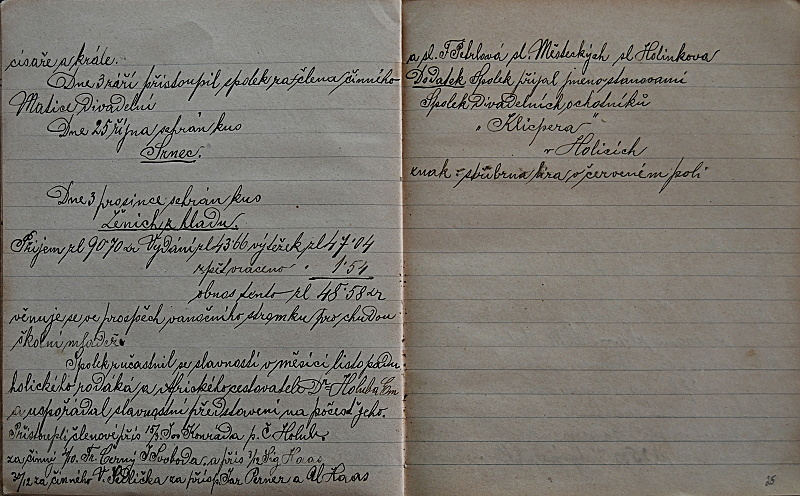 císaře a krále.
Dne 3 září přistoupil spolek za člena činného
Matice Divadelní
Dne 25 října sehrán kus
Srnec.
Dne 3 prosince sehrán kus
Ženich z hladu.
Příjem zl 90·70 kr Vydání zl 43·66 výtěžek zl 47·04
zpět vráceno " 1·54
obnos tento zl 48·58 kr
věnuje se ve prospěch vanočního stromku pro chudou
školní mládež.
Spolek zučastnil se slavnosti v měsíci listopadu
holického rodáka a Afrického cestovatele Dr Holuba Em
a uspořádal slavnostní představení na počest jeho.
Přistoupli členové přis 15/3 Jos Konrád a p. Č Holub.
za činný Fr. Černý Svoboda. a přis 3/12 Sig Haas
za činného V. Sedlička za přisp. Jar Perner a Al Haas
a sl. F Petrlová sl. Městeckých sl Holinkova
Dodatek Spolek přijal jmeno stanovami
Spolek Divadelních ochotníků
„Klicpera"
v Holicích
znak = stříbrna lira v červeném poli
25